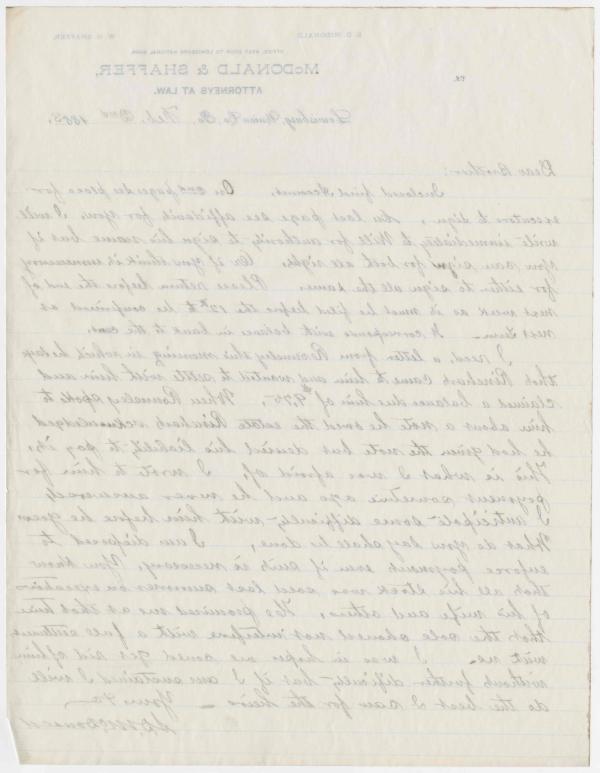 E. D. McDONALD. W. H. SHAFFER.
OFFICE, NEXT DOOR TO LEWISBURG NATIONAL BANK
McDONALD & SHAFFER,
ATTORNEYS AT LAW.
Lewisburg, Union Co. Pa. Feb. 2nd 1885.
Dear Brother:
Inclosed find Account. On 2nd page see place for
executors to sign, On last page see affidavit for you. I will
write immediately to Will for authority to sign his name but if
you can sign for both all right. Or if you think it unnecessary
for either to sign all the same. Please return before the end of
next week as it must be filed before the 12th to be confirmed at
next term. It corresponds with balance in bank to the cent.
I recd. a letter from Rounsley this morning in which he says
that Rinehart came to him and wanted to settle with him and
claimed a balance due him of $9.75. When Rounsley spoke to
him about a note he owed the estate Rinehart acknowledged
he had given the note but denied his liability to pay it,
This is what I was afraid of, I wrote to him for
payment sometime ago and he never answered
I anticipate some difficulty with him before he pays
What do you say shall be done, I am disposed to
enforce payment even if suit is necessary, You know
that all his stock was sold last summer on execution
of his wife and others, He promised me at that time
that the sale should not interfere with a full settlement
with me. I was in hopes we could get rid of him
without further difficulty but if I am sustained I will
do the best I can for the heirs
Yours &c
E D McDonald